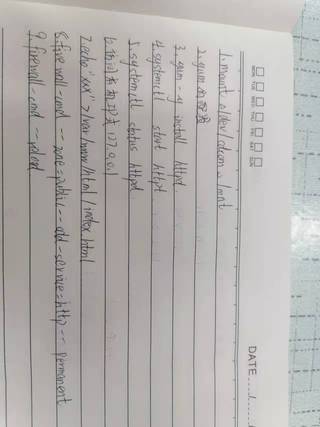 DATE
1. mount /dev/cdrom /mnt
2. yum 的配置
3. yum -y install httpd
4. systemctl start httpd
5. systemctl status httpd
6. 访问本机IP或 127.0.0.1
7. echo "xxx" > /var/www/html/index.html
8. firewall-cmd --zone=public --add-service=http --permanent
9. firewall-cmd --reload